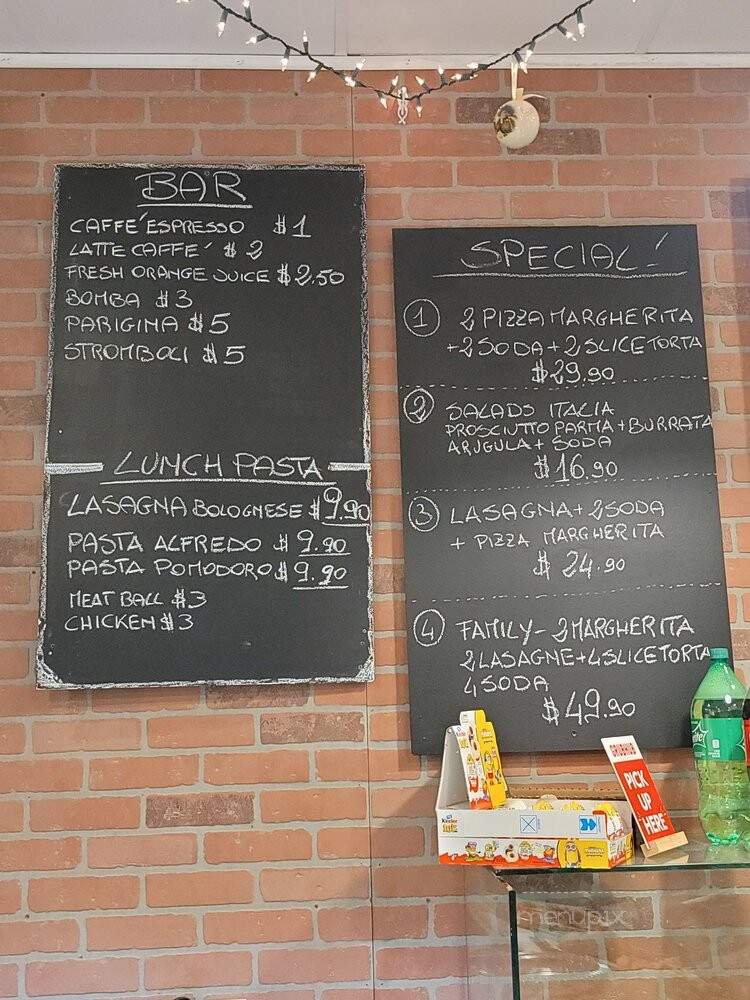 BAR
CAFFE' ESPRESSO $1
LATTE CAFFE' $2
FRESH ORANGE JUICE $2,50
BOMBA $3
PARIGINA $5
STROMBOLI $5
LUNCH PASTA
LASAGNA BOLOGNESE $9.90
PASTA ALFREDO $9.90
PASTA POMODORO $9.90
MEAT BALL $3
CHICKEN $3
SPECIAL!
1 2 PIZZA MARGHERITA
+ 2 SODA + 2 SLICE TORTA
$29.90
2 SALADS ITALIA
PROSCIUTTO PARMA + BURRATA
ARUGULA + SODA
$16.90
3 LASAGNA + 2 SODA
+ PIZZA MARGHERITA
$24.90
4 FAMILY - 2 MARGHERITA
2 LASAGNE + 4 SLICE TORTA
4 SODA
$49.90
GRUBHUB
PICK
UP
HERE
Kinder
menupix